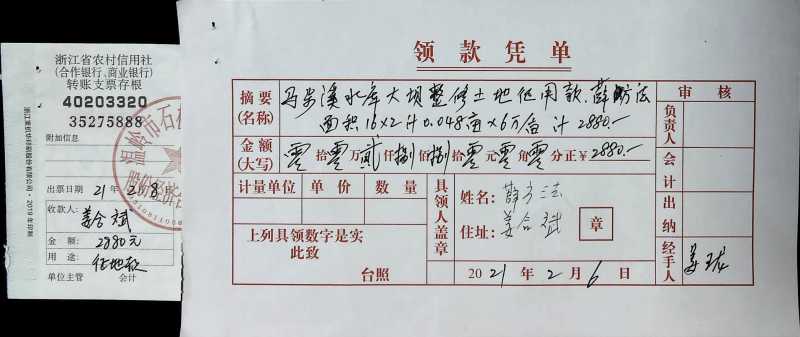 浙江省农村信用社
(合作银行、商业银行)
转账支票存根
40203320
35275888
附加信息
出票日期 21年 2月8日
收款人:
姜合斌
金 额: 2880元
用 途: 征地款
单位主管 会计
温岭市石
领款凭单
摘要
(名称)
马步溪水库大坝整修土地征用款.薛方法
面积16×2计0.048亩×6万/亩 计2880.-
金额
(大写)
零拾零万贰仟捌佰捌拾零元零角零分正￥2880.-
计量单位 单 价 数 量
上列具领数字是实
此致
台照
具领人盖章
姓名: 薛方法
住址: 姜合斌
章
2021年2月6日
审 核
负责人
会计
出纳
经手人